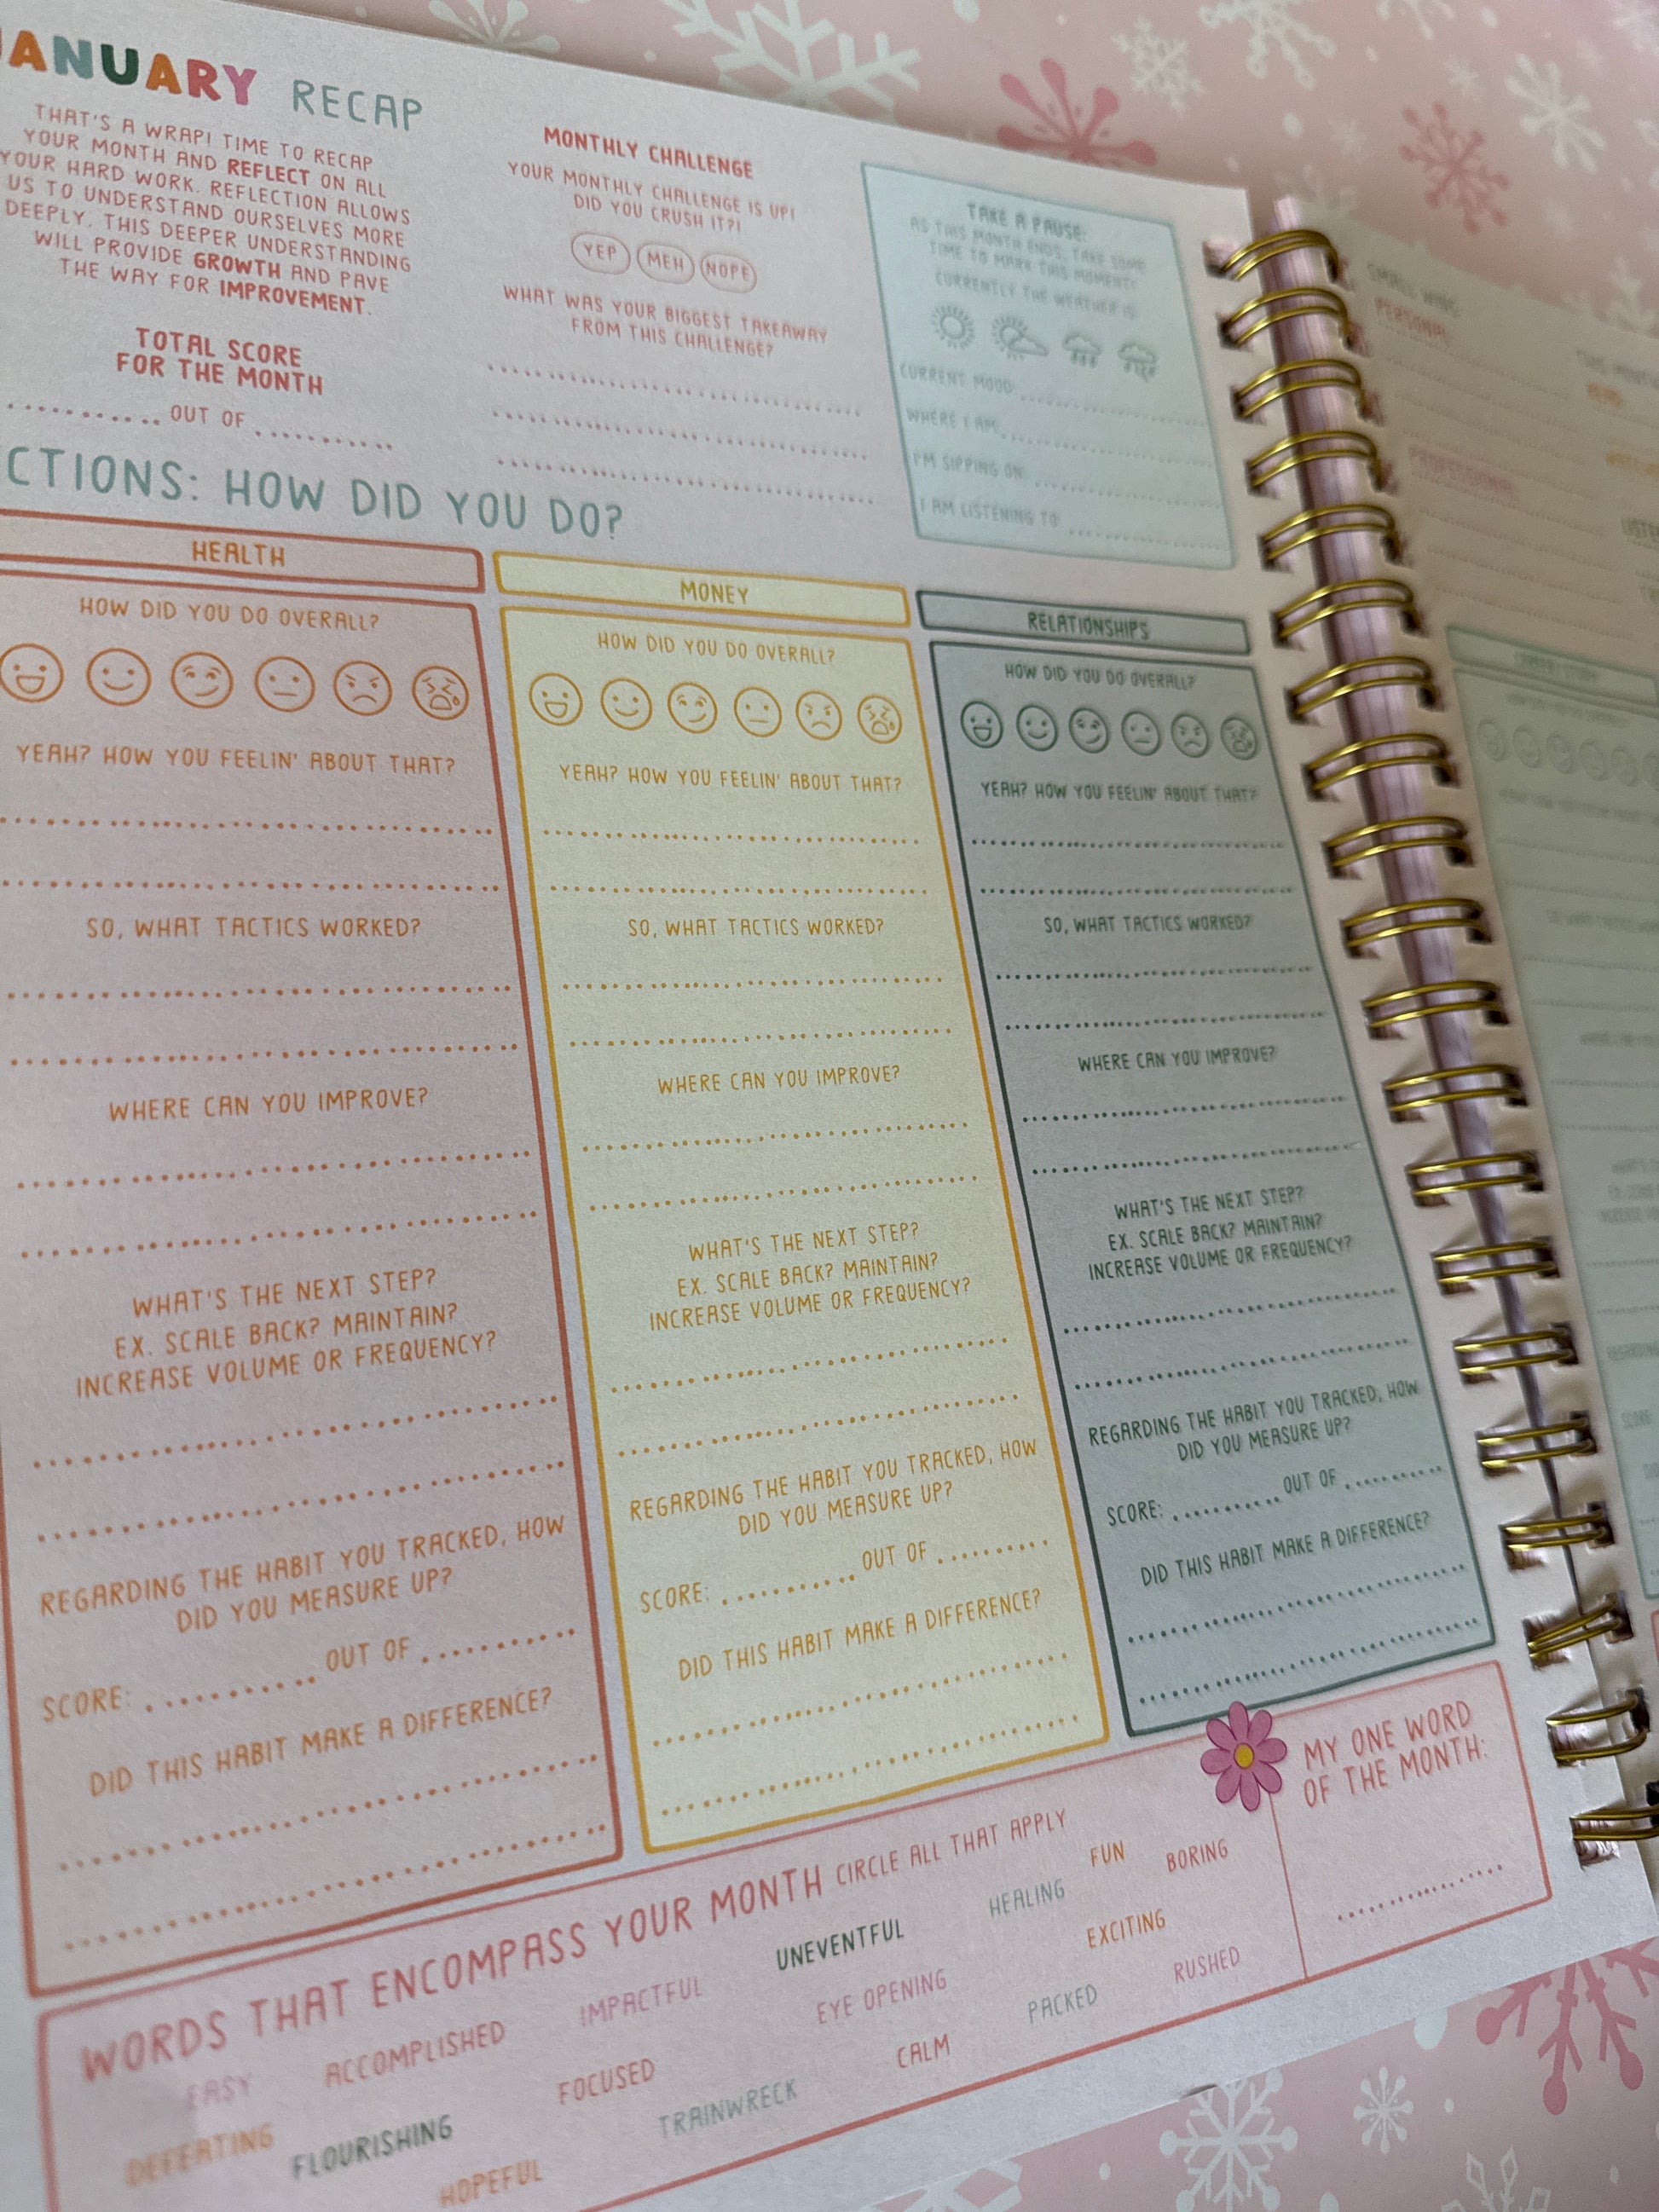 ANUARY RECAP
THAT'S A WRAP! TIME TO RECAP
YOUR MONTH AND REFLECT ON ALL
YOUR HARD WORK. REFLECTION ALLOWS
US TO UNDERSTAND OURSELVES MORE
DEEPLY. THIS DEEPER UNDERSTANDING
WILL PROVIDE GROWTH AND PAVE
THE WAY FOR IMPROVEMENT.
TOTAL SCORE
FOR THE MONTH
OUT OF
MONTHLY CHALLENGE
YOUR MONTHLY CHALLENGE IS UP!
DID YOU CRUSH IT?!
YEP MEH NOPE
WHAT WAS YOUR BIGGEST TAKEAWAY
FROM THIS CHALLENGE?
TAKE A PAUSE:
AS THIS MONTH ENDS, TAKE SOME
TIME TO MARK THIS MOMENT!
CURRENTLY THE WEATHER IS:
CURRENT MOOD:
WHERE I AM:
I'M SIPPING ON:
I AM LISTENING TO:
CTIONS: HOW DID YOU DO?
HEALTH
HOW DID YOU DO OVERALL?
YEAH? HOW YOU FEELIN' ABOUT THAT?
SO, WHAT TACTICS WORKED?
WHERE CAN YOU IMPROVE?
WHAT'S THE NEXT STEP?
EX. SCALE BACK? MAINTAIN?
INCREASE VOLUME OR FREQUENCY?
REGARDING THE HABIT YOU TRACKED, HOW
DID YOU MEASURE UP?
SCORE: OUT OF
DID THIS HABIT MAKE A DIFFERENCE?
MONEY
HOW DID YOU DO OVERALL?
YEAH? HOW YOU FEELIN' ABOUT THAT?
SO, WHAT TACTICS WORKED?
WHERE CAN YOU IMPROVE?
WHAT'S THE NEXT STEP?
EX. SCALE BACK? MAINTAIN?
INCREASE VOLUME OR FREQUENCY?
REGARDING THE HABIT YOU TRACKED, HOW
DID YOU MEASURE UP?
SCORE: OUT OF
DID THIS HABIT MAKE A DIFFERENCE?
RELATIONSHIPS
HOW DID YOU DO OVERALL?
YEAH? HOW YOU FEELIN' ABOUT THAT?
SO, WHAT TACTICS WORKED?
WHERE CAN YOU IMPROVE?
WHAT'S THE NEXT STEP?
EX. SCALE BACK? MAINTAIN?
INCREASE VOLUME OR FREQUENCY?
REGARDING THE HABIT YOU TRACKED, HOW
DID YOU MEASURE UP?
SCORE: OUT OF
DID THIS HABIT MAKE A DIFFERENCE?
WORDS THAT ENCOMPASS YOUR MONTH CIRCLE ALL THAT APPLY
EASY ACCOMPLISHED IMPACTFUL UNEVENTFUL HEALING FUN BORING
DEFEATING FLOURISHING FOCUSED EYE OPENING EXCITING
HOPEFUL TRAINWRECK CALM PACKED RUSHED
MY ONE WORD
OF THE MONTH:
SMALL WINS:
PERSONAL:
PROFESSIONAL: